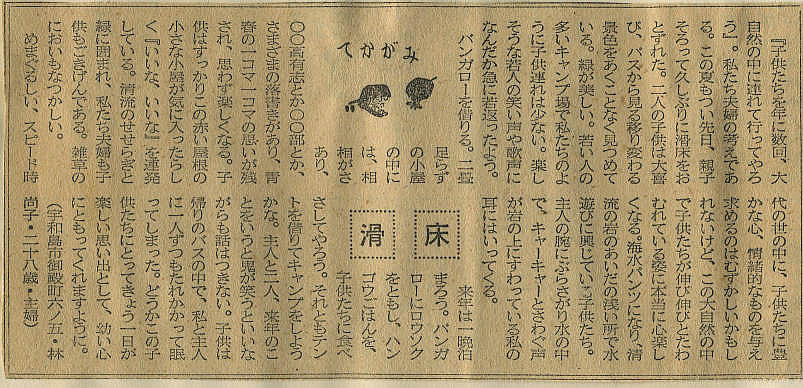 てかがみ
滑床
『子供たちを年に数回、大
自然の中に連れて行ってやろ
う』。私たち夫婦の考えであ
る。この夏もつい先日、親子
そろって久しぶりに滑床をお
とずれた。二人の子供は大喜
び、バスから見る移り変わる
景色をあくことなく見つめて
いる。緑が美しい。若い人の
多いキャンプ場で私たちのよ
うに子供連れは少ない。楽し
そうな若人の笑い声や歌声に
なんだか急に若返ったよう。
バンガローを借りる。二畳
足らず
の小屋
の中に
は、相
相がさ
あり、
〇〇高有志とか〇〇部とか、
さまざまの落書きがあり、青
春の一コマ一コマの思いが残
され、思わず楽しくなる。子
供はすっかりこの赤い屋根の
小さな小屋が気に入ったらし
く『いいな、いいな』を連発
している。清流のせせらぎと
緑に囲まれ、私たち夫婦も子
供もごきげんである。雑草の
においもなつかしい。
めまぐるしい、スピード時
代の世の中に、子供たちに豊
かな心、情緒的なものを与え
求めるのはむずかしいかもし
れないけど、この大自然の中
で子供たちが伸び伸びとたわ
むれている姿に本当に心楽し
くなる。海水パンツになり、清
流の岩のあいだの浅い所で水
遊びに興じていた子供たち。
主人の腕にぶらさがり水の中
で、キャーキャーとさわぐ声
が岩の上にすわっている私の
耳にはいってくる。
来年は一晩泊
まろう。バンガ
ローにロウソク
をともし、ハン
ゴウごはんを、
子供たちに食べ
さしてやろう。それともテン
トを借りてキャンプをしよう
かな。主人と二人、来年のこ
とをいうと鬼が笑うといいな
がらも話はつきない。子供は
帰りのバスの中で、私と主人
に一人ずつもたれかかって眠
ってしまった。どうかこの子
供たちにとってきょう一日が
楽しい思い出として、幼い心
にともってくれますように。
（宇和島市御殿町六ノ五・林
尚子・二十八歳・主婦）